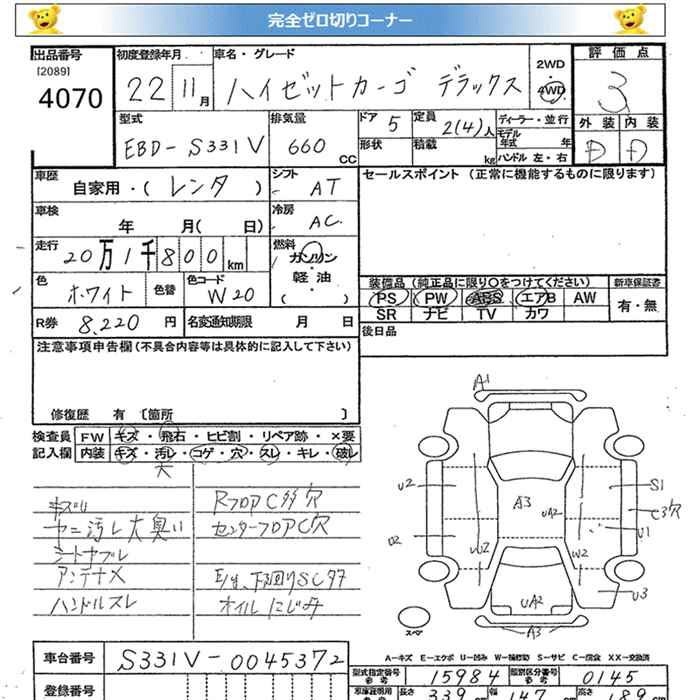 完全ゼロ切りコーナー
出品番号
[2089]
4070
初度登録年月
22 11月
車名・グレード
ハイゼットカーゴ デラックス
2WD
4WD
評価点
3
外装 内装
D D
型式
EBD-S331V
排気量
660 CC
ドア 5
形状
定員 2(4)人
積載 kg
ディーラー・並行
モデル年式 年
ハンドル 左・右
車歴
自家用・(レンタ)
シフト AT
車検 年 月(日)
冷房 AC
走行 20万1千800km
燃料 ガソリン・軽油 ( )
色 ホワイト 色替
色コード W20
R券 8,220円
名変通知期限 月 日
セールスポイント (正常に機能するものに限ります)
装備品 (純正品に限り○をつけてください)
PS PW ABS エアB AW
SR ナビ TV カワ
新車保証書
有・無
後日品
注意事項申告欄 (不具合内容等は具体的に記入して下さい)
修復歴 有 〔箇所 〕
検査員記入欄
FW キズ・飛石・ヒビ割・リペア跡・×要
内装 キズ・汚レ・コゲ・穴・スレ・キレ・破レ
大
ヤニ汚レ大臭い
シートヤブレ
アンテナX
ハンドルスレ
RフロアC 穴
センターフロアC穴
下回りSC
オイルにじみ
A1
U2
U2
A3
UA2
W2
W2
S1
C3穴
U1
U3
UA2
A3
スペア
A-キズ E-エクボ U-凹み W-補修跡 S-サビ C-腐食 XX-交換済
車台番号
S331V-0045372
型式指定番号 参考 15984
類別区分番号 参考 0145
登録番号
長さ 339cm 幅 147cm 高さ 189cm